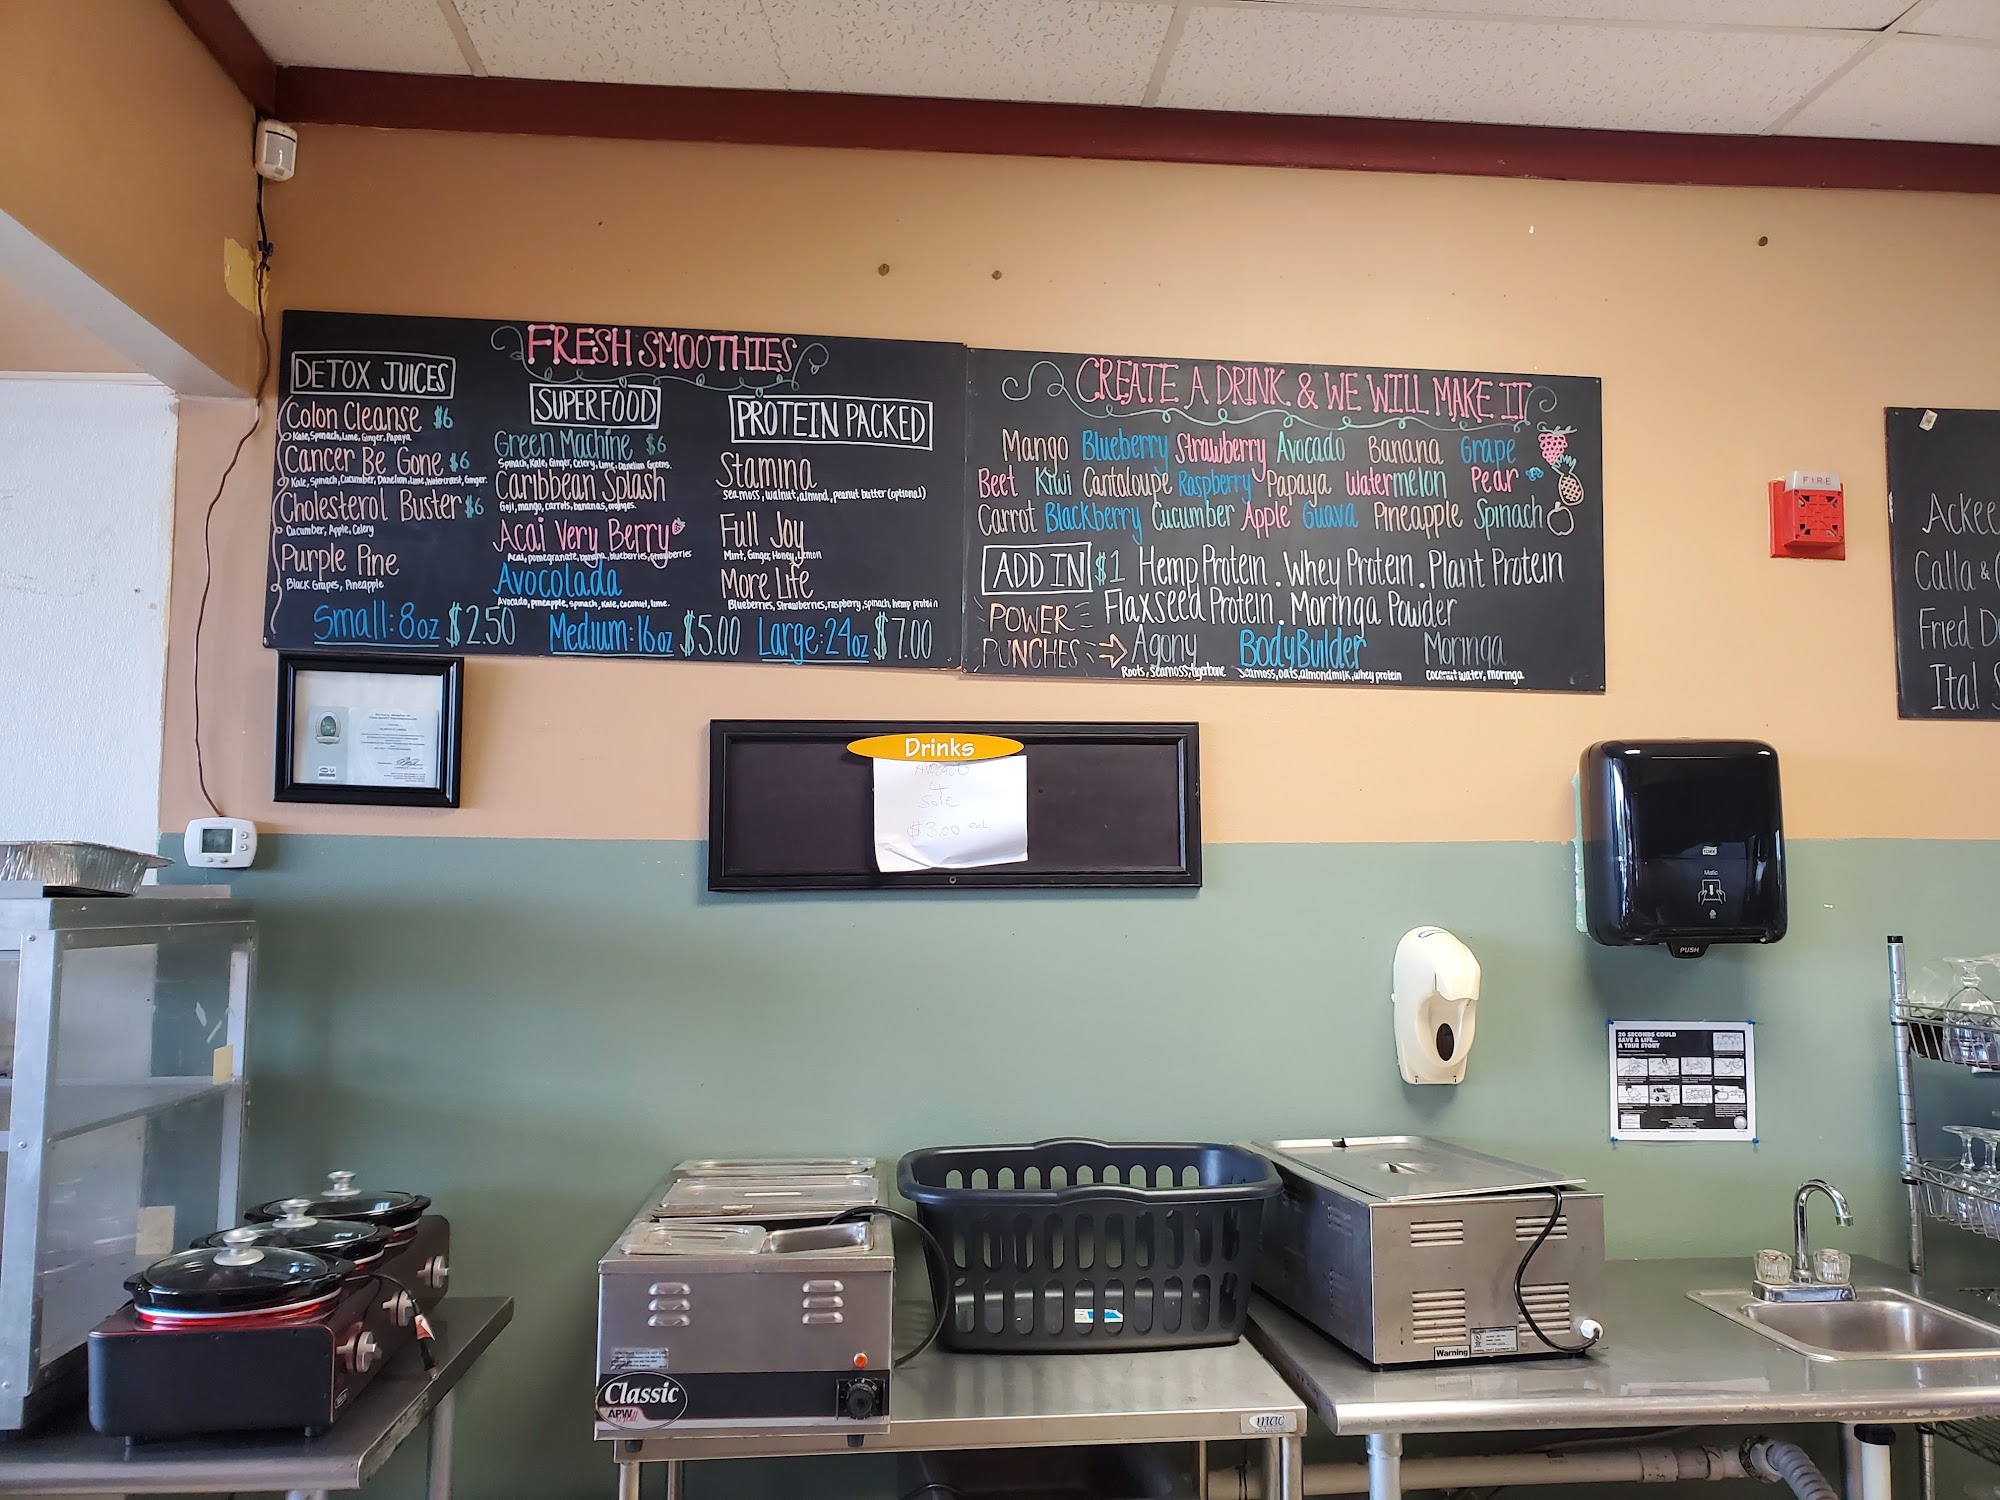 FRESH SMOOTHIES
DETOX JUICES
Colon Cleanse $6
Kale, Spinach, Lime, Ginger, Papaya.
Cancer Be Gone $6
Kale, Spinach, Cucumber, Danelion, Lime, Watercrest, Ginger.
Cholesterol Buster $6
Cucumber, Apple, Celery
Purple Pine
Black Grapes, Pineapple
SUPERFOOD
Green Machine $6
Spinach, Kale, Ginger, Celery, Lime, Danelion Greens.
Caribbean Splash
Goji, mango, carrots, bananas, oranges.
Acai Very Berry
Acai, pomegranate, banana, blueberries, strawberries
Avocolada
Avocado, pineapple, spinach, Kale, coconut, lime.
PROTEIN PACKED
Stamina
seamoss, walnut, almond, peanut butter (optional)
Full Joy
Mint, Ginger, Honey, Lemon
More Life
Blueberries, Strawberries, raspberry, spinach, hemp protein
Small: 8oz $2.50 Medium: 16oz $5.00 Large: 24oz $7.00
CREATE A DRINK & WE WILL MAKE IT
Mango Blueberry Strawberry Avocado Banana Grape
Beet Kiwi Cantaloupe Raspberry Papaya Watermelon Pear
Carrot Blackberry Cucumber Apple Guava Pineapple Spinach
ADD IN $1 Hemp Protein . Whey Protein . Plant Protein
Flaxseed Protein . Moringa Powder
POWER
PUNCHES
Agony
Roots, Seamoss, tigerbone
BodyBuilder
Seamoss, oats, almondmilk, whey protein
Moringa
Coconut water, moringa
Ackee
Calla &
Fried
Ital
FIRE
Drinks
Avocado
Sale
$3.00 each
TORK
Matic
PUSH
20 SECONDS COULD
SAVE A LIFE...
A TRUE STORY
Classic
APW
Warning
mac